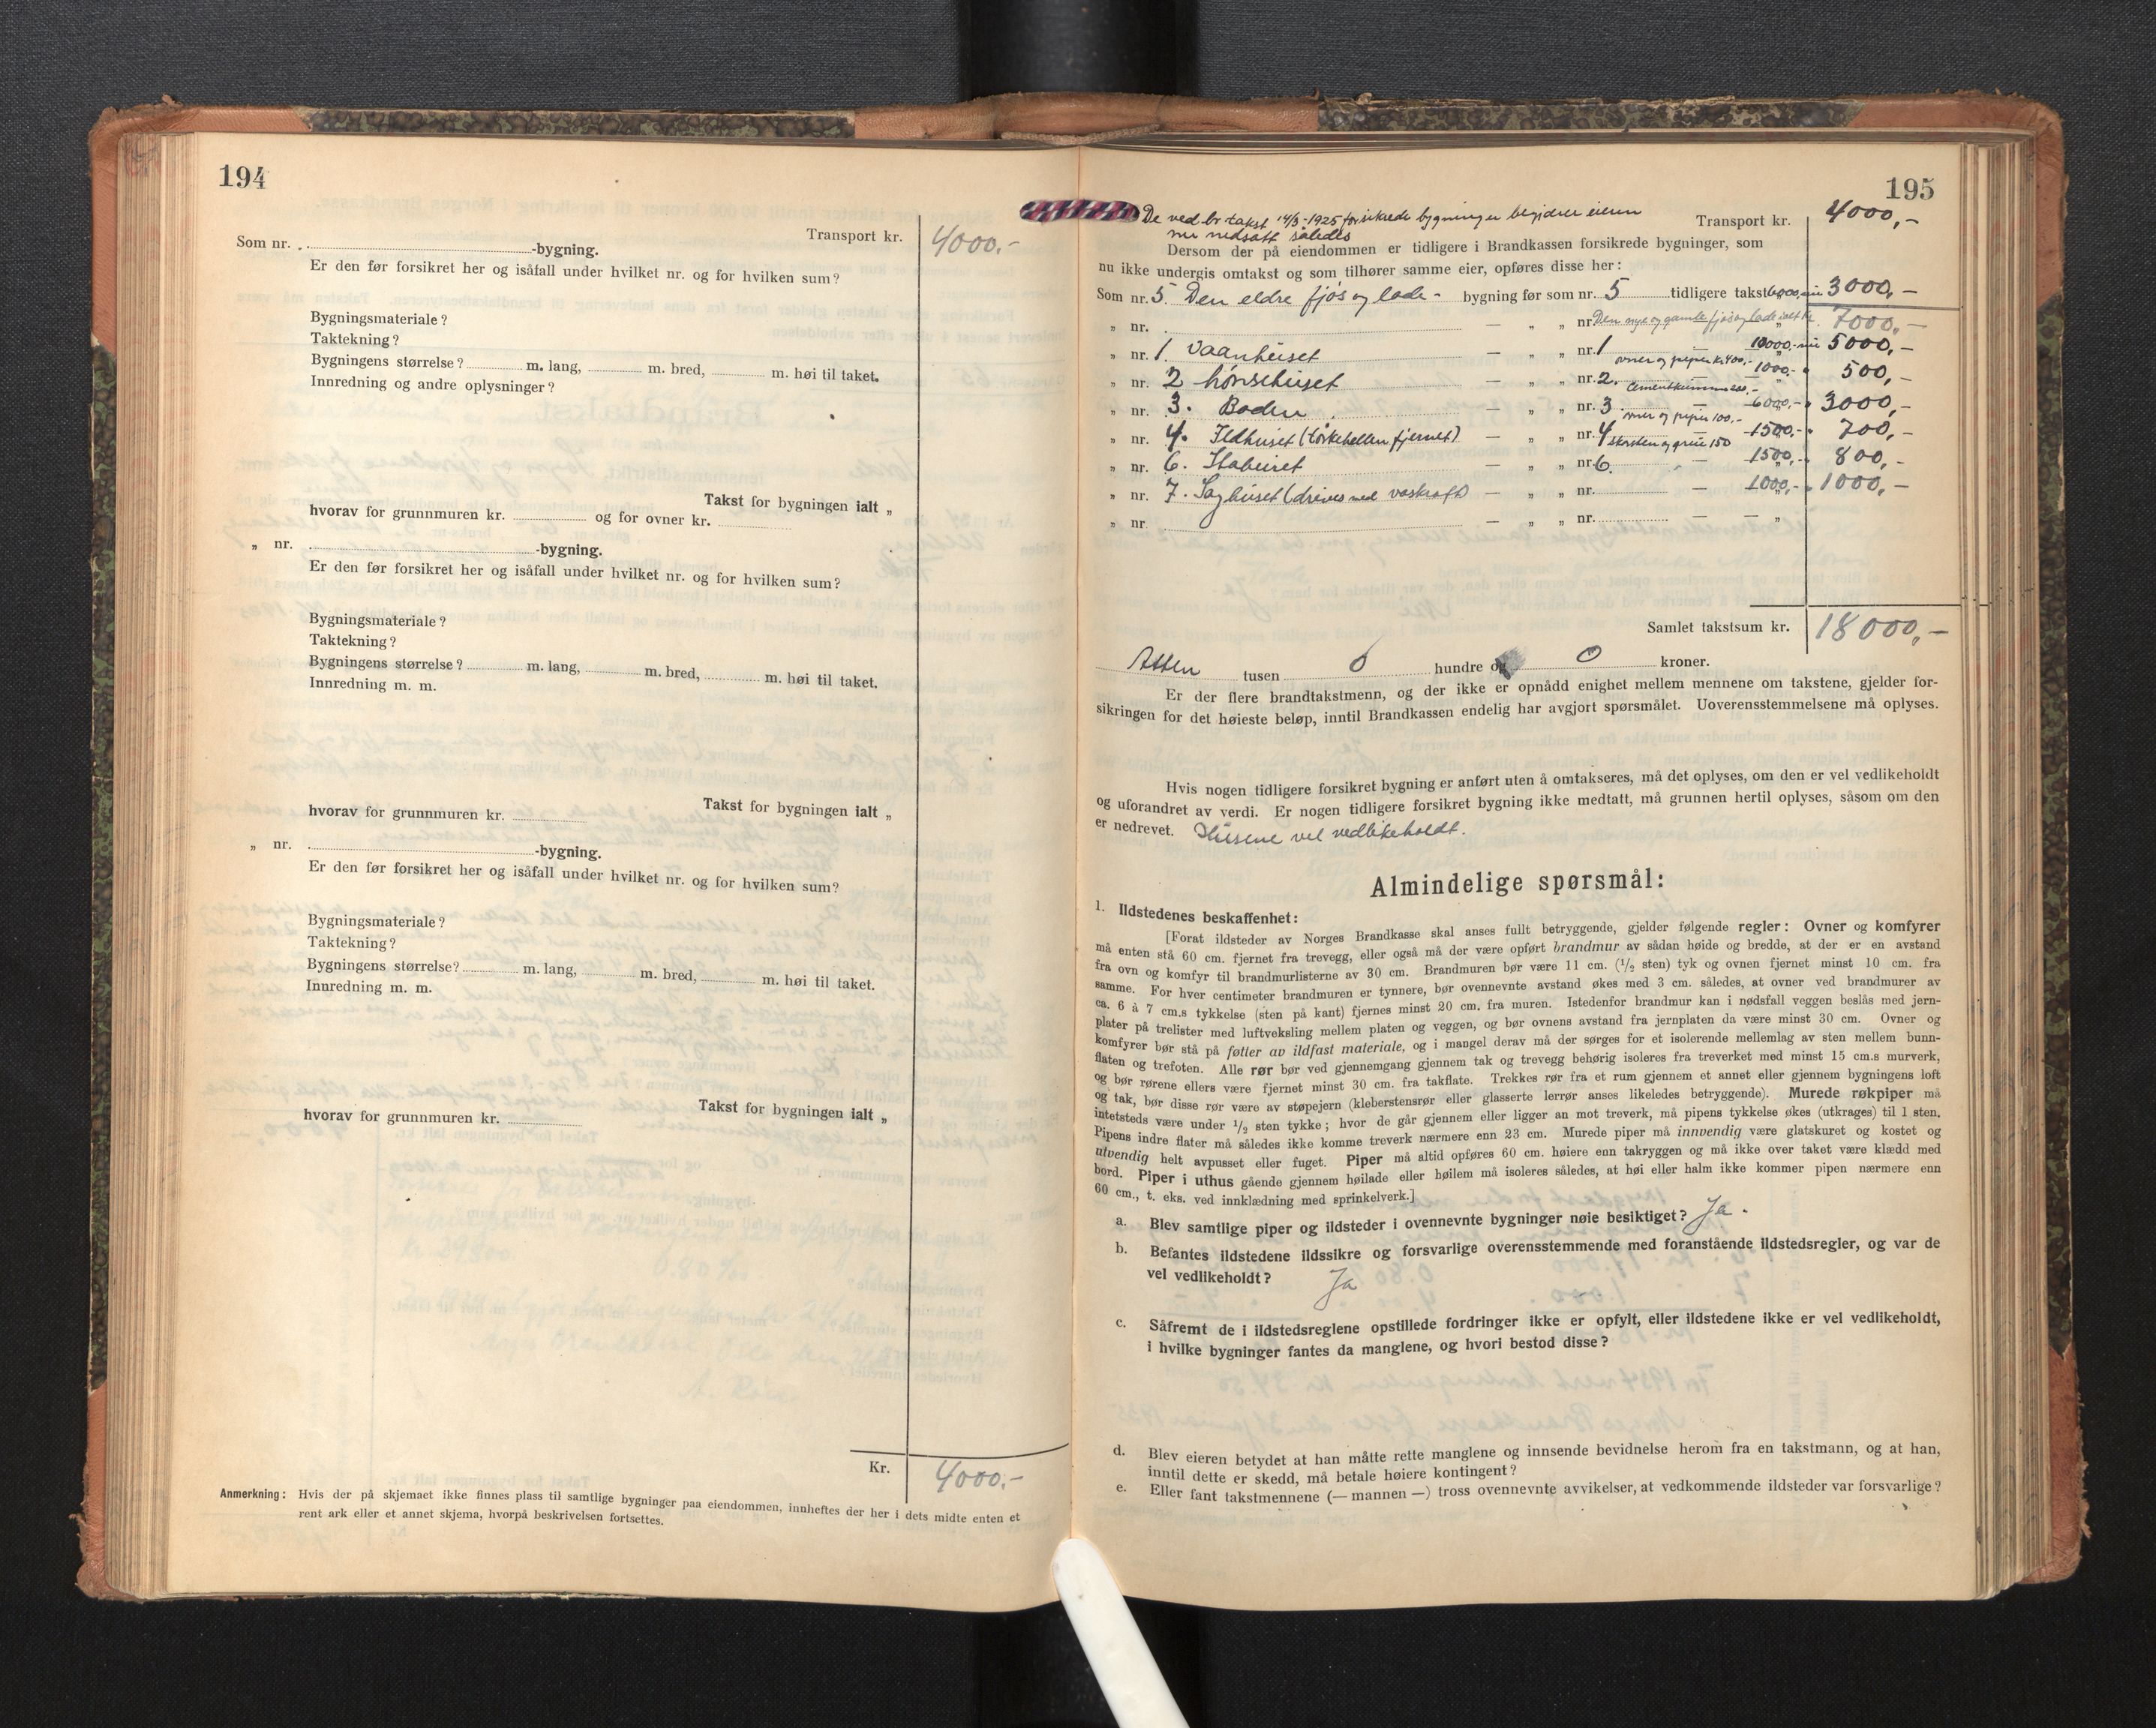 194
Transport kr.
4000.-
Som nr. . -bygning.
Er den før forsikret her og isåfall under hvilket nr. og for hvilken sum?
Bygningsmateriale?
Taktekning?
Bygningens størrelse? m. lang, m. bred, m. høi til taket.
Innredning og andre oplysninger?
Takst for bygningen ialt „
hvorav for grunnmuren kr. og for ovner kr.
„ nr. -bygning.
Er den før forsikret her og isåfall under hvilket nr. og for hvilken sum?
Bygningsmateriale?
Taktekning?
Bygningens størrelse? m. lang, m. bred, m. høi til taket.
Innredning m. m.
Takst for bygningen ialt „
hvorav for grunnmuren kr.
„ nr. -bygning.
Er den før forsikret her og isåfall under hvilket nr. og for hvilken sum?
Bygningsmateriale?
Taktekning?
Bygningens størrelse? m. lang, m. bred, m. høi til taket.
Innredning m. m.
Takst for bygningen ialt „
hvorav for grunnmuren kr.
Kr. 4000.-
Anmerkning: Hvis der på skjemaet ikke finnes plass til samtlige bygninger paa eiendommen, innheftes der her i dets midte enten et
rent ark eller et annet skjema, hvorpå beskrivelsen fortsettes.
195
De ved br. takst 14/3-1925 forsikrede bygninger begjærer eieren
nu nedsatt således
Transport kr. 4000,-
Dersom der på eiendommen er tidligere i Brandkassen forsikrede bygninger, som
nu ikke undergis omtakst og som tilhører samme eier, opføres disse her:
Som nr. 5. Den eldre fjøs og lade - bygning før som nr. 5 tidligere takst 6000,- nu 3000,-
„ nr. . — „ „ nr. Den nye og gamle fjøs og lade ialt kr. 7000,-
„ nr. 1. Vaanhuset — „ „ nr. 1 10000,- nu 5000,-
ovner og piper kr. 400,-
„ nr. 2 hønsehuset — „ „ nr. 2. 1000,- 500,-
„ nr. 3. Boden — „ „ nr. 3 — 6000,- 3000,-
ovner og piper 100,-
„ nr. 4. Ildhuset (tørkehellen fjernet) — „ „ nr. 4 — 1500,- 700,-
skorsten og grue 150
„ nr. 6. Staburet — „ „ nr. 6. — 1500,- 800,-
„ nr. 7. Saghuset (drives med vaskraft) — „ „ nr. — 1000,- 1000,-
„ nr — „ „ nr. — „
Samlet takstsum kr. 18000,-
Atten tusen 0 hundre og 0 kroner.
Er der flere brandtakstmenn, og der ikke er opnådd enighet mellem mennene om takstene, gjelder for-
sikringen for det høieste beløp, inntil Brandkassen endelig har avgjort spørsmålet. Uoverensstemmelsene må oplyses.
Hvis nogen tidligere forsikret bygning er anført uten å omtakseres, må det oplyses, om den er vel vedlikeholdt
og uforandret av verdi. Er nogen tidligere forsikret bygning ikke medtatt, må grunnen hertil oplyses, såsom om den
er nedrevet. Husene vel vedlikeholdt.
Almindelige spørsmål:
1. Ildstedenes beskaffenhet:
[Forat ildsteder av Norges Brandkasse skal anses fullt betryggende, gjelder følgende regler: Ovner og komfyrer
må enten stå 60 cm. fjernet fra trevegg, eller også må der være opført brandmur av sådan høide og bredde, at der er en avstand
fra ovn og komfyr til brandmurlisterne av 30 cm. Brandmuren bør være 11 cm. (1/2 sten) tyk og ovnen fjernet minst 10 cm. fra
samme. For hver centimeter brandmuren er tynnere, bør ovennevnte avstand økes med 3 cm. således, at ovner ved brandmurer av
ca. 6 à 7 cm.s tykkelse (sten på kant) fjernes minst 20 cm. fra muren. Istedenfor brandmur kan i nødsfall veggen beslås med jern-
plater på trelister med luftveksling mellem platen og veggen, og bør ovnens avstand fra jernplaten da være minst 30 cm. Ovner og
komfyrer bør stå på føtter av ildfast materiale, og i mangel derav må der sørges for et isolerende mellemlag av sten mellem bunn-
flaten og trefoten. Alle rør bør ved gjennemgang gjennem tak og trevegg behørig isoleres fra treverket med minst 15 cm.s murverk,
og bør rørene ellers være fjernet minst 30 cm. fra takflate. Trekkes rør fra et rum gjennem et annet eller gjennem bygningens loft
og tak, bør disse rør være av støpejern (kleberstensrør eller glasserte lerrør anses likeledes betryggende). Murede røkpiper må
intetsteds være under 1/2 sten tykke; hvor de går gjennem eller ligger an mot treverk, må pipens tykkelse økes (utkrages) til 1 sten.
Pipens indre flater må således ikke komme treverk nærmere enn 23 cm. Murede piper må innvendig være glatskuret og kostet og
utvendig helt avpusset eller fuget. Piper må altid opføres 60 cm. høiere enn takryggen og må ikke over taket være klædd med
bord. Piper i uthus gående gjennem høilade eller høilem må isoleres således, at høi eller halm ikke kommer pipen nærmere enn
60 cm., t. eks. ved innklædning med sprinkelverk.]
a. Blev samtlige piper og ildsteder i ovennevnte bygninger nøie besiktiget? Ja.
b. Befantes ildstedene ildssikre og forsvarlige overensstemmende med foranstående ildstedsregler, og var de
vel vedlikeholdt? Ja
c. Såfremt de i ildstedsreglene opstillede fordringer ikke er opfylt, eller ildstedene ikke er vel vedlikeholdt,
i hvilke bygninger fantes da manglene, og hvori bestod disse?
d. Blev eieren betydet at han måtte rette manglene og innsende bevidnelse herom fra en takstmann, og at han,
inntil dette er skedd, må betale høiere kontingent?
e. Eller fant takstmennene (— mannen —) tross ovennevnte avvikelser, at vedkommende ildsteder var forsvarlige?